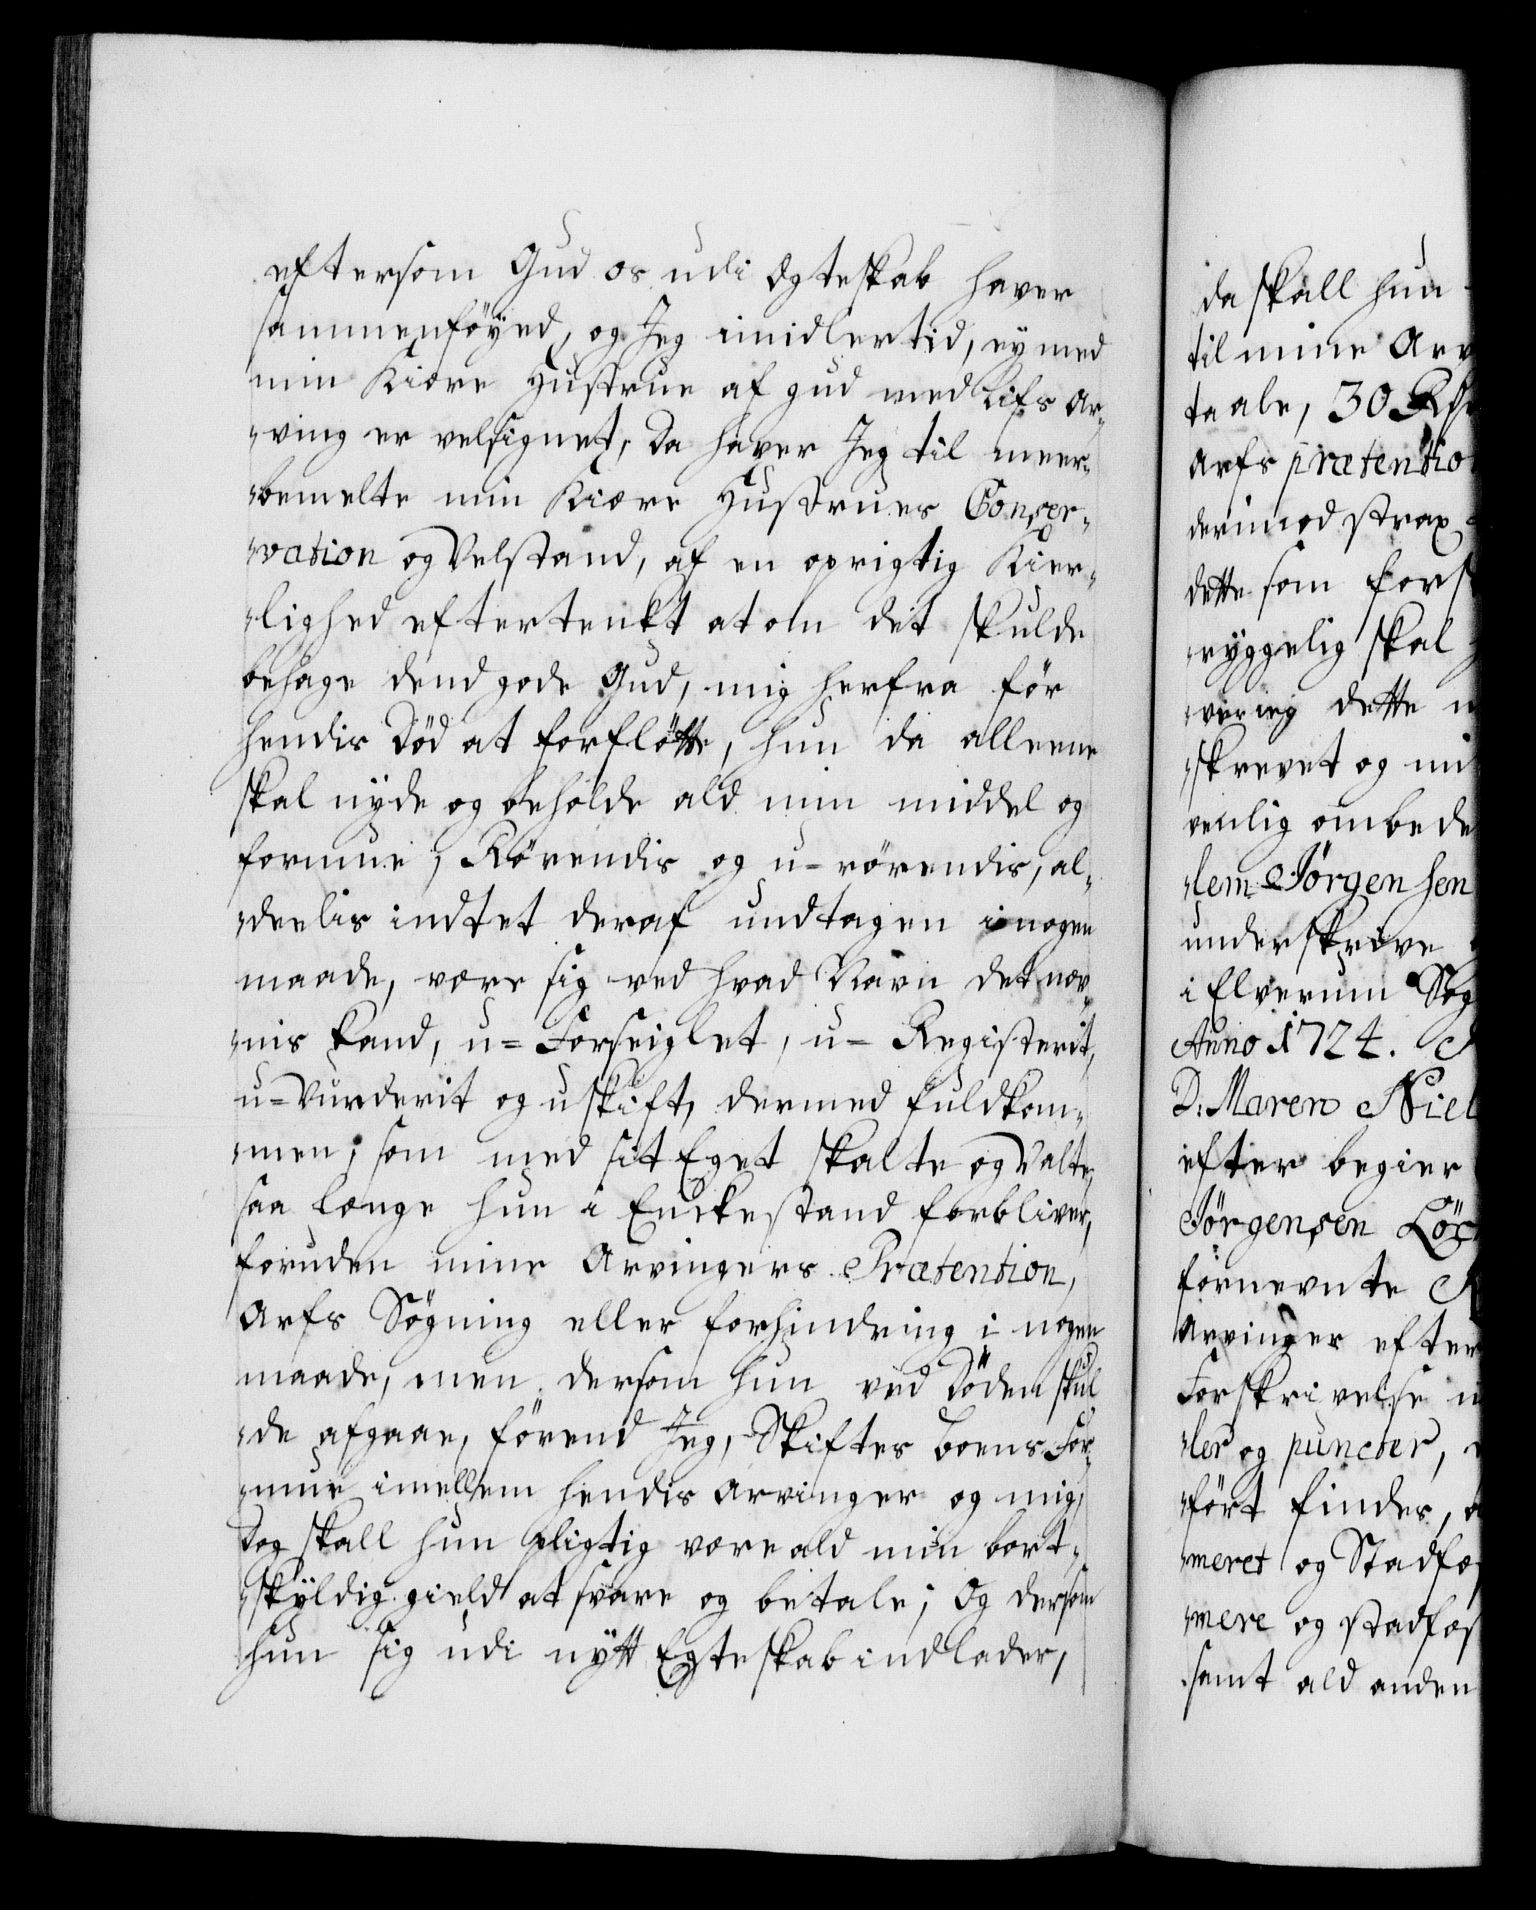 eftersom Gud os udi Ægteskab haver
sammenföÿed, og Jeg imidlertid, ey med
min Kiære Hustrue af gud med Lifs Ar¬
„ving er velsignet, Da haver Jeg til meer¬
„bemelte min Kiære Hustrues Conser¬
„vation og Velstand, af en oprigtig Kier¬
„lighed eftertenkt at om det skulde
behage dend gode Gud, mig herfra för
hendis Död at forflötte, hun da alleene
skal nÿde og beholde ald min middel og
formue, Rörendis og u-rörendis, al¬
„deelis indtet deraf undtagen i nogen
maade, være sig ved hvad Navn det nev¬
„nis kand, u-Forseiglet, u-Registerit,
u-Vurderit og uskift, dermed fuldkom¬
„men, som med sit Eget skalte og Valte,
saa længe hun i Enckestand forbliver,
foruden mine Arvingers Prætention,
Arfs Sögning eller forhindring i nogen
maade, men dersom hun ved Döden skul
„de afgaae, förend Jeg, Skiftes boens For¬
„mue imellem hendis Arvinger og mig,
Dog skall hun pligtig være ald min bort¬
„skÿldig gield at svare og betale; Og dersom
hun sig udi nÿtt Egteskab indlader,
da skall hun
til mine Arv
taale, 30 R
Arfs prætentio
derimod strax
dette som forst
„ryggelig skal
„vering dette
„skrevet og
venlig ombede
„lem Jörgensen
underskrive
i Elverum Sog
Anno 1724.
D: Maren Niel
efter begier
Jörgensen Lö
förnevnte
Arvinger efter
Forskrivelse
„ler og puncter,
„fört findes,
„meret og Stadfæs
„mere og stadfæs
samt ald anden